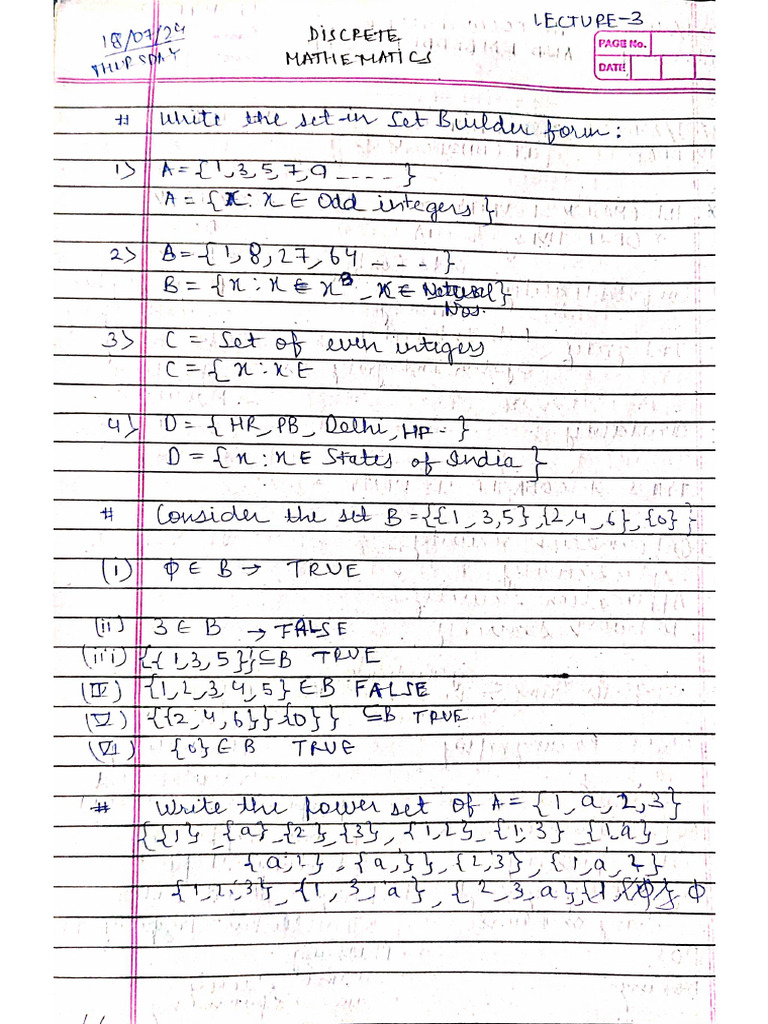 LECTURE-3
18/07/24
THURSDAY
DISCRETE
MATHEMATICS
PAGE No.
DATE
# Write the set in Set Builder form :
1) A = {1, 3, 5, 7, 9 - - - - }
A = {x : x ∈ Odd integers}
2) B = {1, 8, 27, 64 - - - - }
B = {x : x ∈ x³, x ∈ Natural}
Nos.
3) C = Set of even integers
C = { x : x ∈
4) D = { HR, PB, Delhi, HP - }
D = {x : x ∈ States of India }
# Consider the set B = {{1, 3, 5}, {2, 4, 6}, {0} }
(i) ϕ ∈ B → TRUE
(ii) 3 ∈ B → FALSE
(iii) {{1, 3, 5}} ⊆ B TRUE
(IV) {1, 2, 3, 4, 5} ∈ B FALSE
(V) {{2, 4, 6}} {0}} ⊆ B TRUE
(VI) {0} ∈ B TRUE
# Write the power set of A = {1, a, 2, 3}
{{1}, {a}, {2}, {3}, {1, 2}, {1, 3}, {1, a},
{a, 2}, {a, 3}, {2, 3}, {1, a, 2}
{1, 2, 3}, {1, 3, a}, {2, 3, a}, {1, ϕ